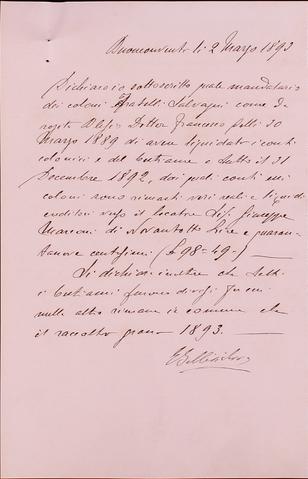 Buonconvento li 2 Marzo 1893
Dichiaro io sottoscritto quale mandatario
dei coloni Fratelli Salvagni come da
rogito Dottor Francesco 30
Marzo 1889 di aver liquidato i conti
colonici e del bestiame a tutto il 31
Decembre 1892, dai quali conti
coloni sono rimasti veri reali e liquidi
creditori verso il locatore Sig. Giuseppe
Marconi di Novantotto Lire e quaran-
tanove centesimi (£ 98-49-)
Si dichiara inoltre che
i bestiami furono
nulla altro rimane in comune che
il raccolto grano 1893.